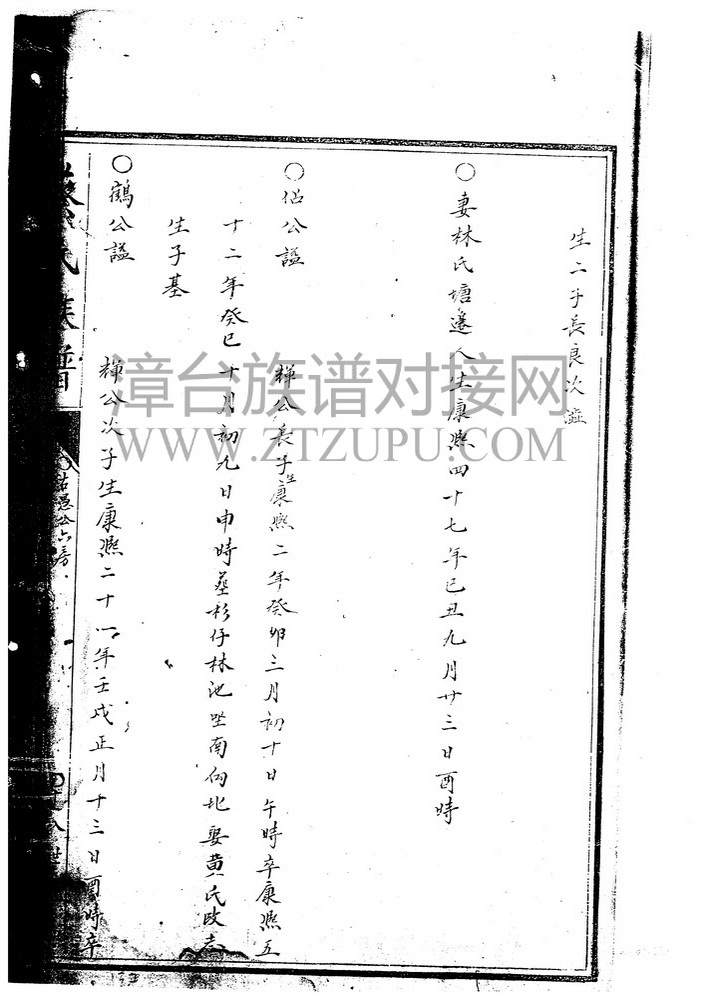 生二子長良次
○妻林氏塘邊人生康熙四十七年己丑九月廿三日酉時
○侣公謚
輝公長子生康熙二年癸卯三月初十日午時卒康熙五
十二年癸巳十月初九日申時葬杉仔林池坐南向北娶黄氏
生子基
○鶴公謚
輝公次子生康熙二十一年壬戌正月十三日酉時卒
氏族譜
公六房
漳台族谱对接网
WWW.ZTZUPU.COM